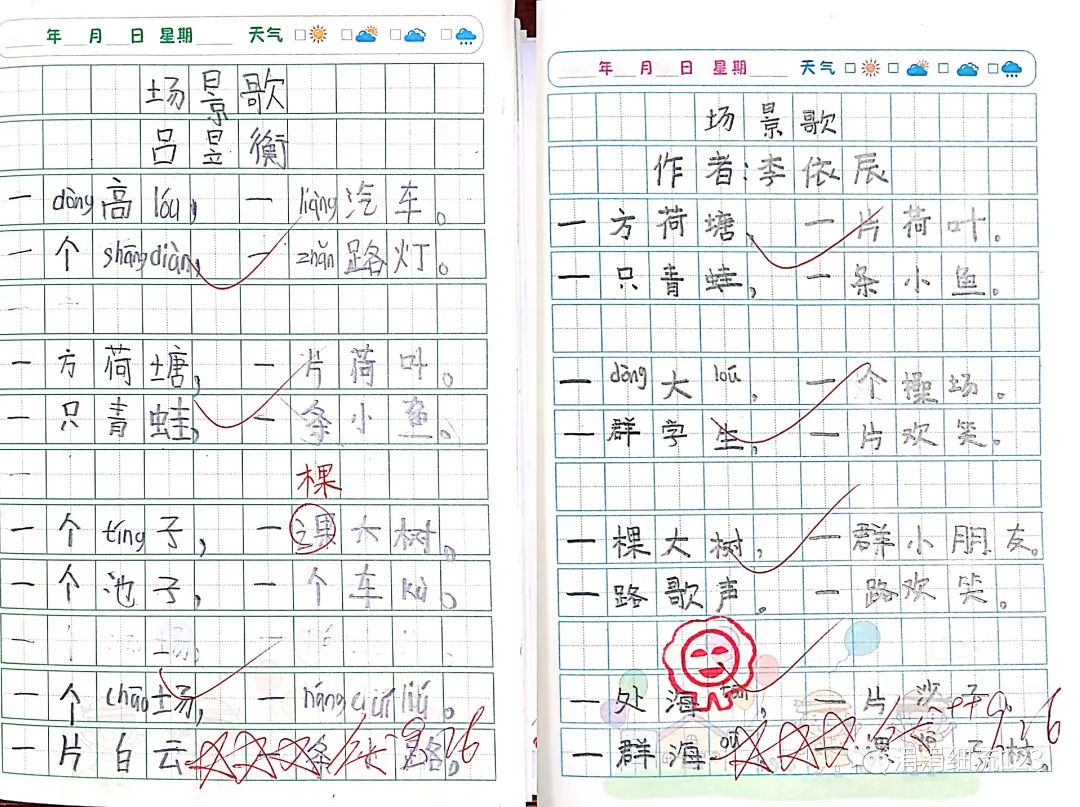 年 月 日 星期 天气
场景歌
吕昱衡
一dòng高lóu，一liàng汽车。
一个shāngdiàn，一zhǎn路灯。
一方荷塘，一片荷叶。
一只青蛙，一条小鱼。
棵
一个tíng子，一棵大树。
一个池子，一个车kù。
一个chǎo场，一háng
一片白云，一条 路。
9.26
年 月 日 星期 天气
场景歌
作者：李依辰
一方荷塘，一片荷叶。
一只青蛙，一条小鱼。
一dòng大loú，一个操场。
一群学生，一片欢笑。
一棵大树，一群小朋友。
一路歌声。一路欢笑。
一处海tān，一片沙子
一群海oū 树。
9.26
涓涓细流123